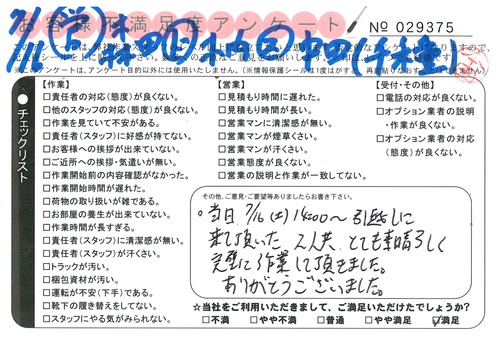 お客様不満足度アンケート
No 029375
※このアンケートは、アンケート目的以外には使用いたしません。
チェックリスト
【作業】
□責任者の対応(態度)が良くない。
□他のスタッフの対応(態度)が良くない。
□作業を見ていて不安がある。
□責任者(スタッフ)に好感が持てない。
□お客様への挨拶が出来ていない。
□ご近所への挨拶・気遣いが無い。
□作業開始前の内容確認がなかった。
□作業開始時間が遅れた。
□荷物の取り扱いが雑である。
□お部屋の養生が出来ていない。
□作業時間が長すぎる。
□責任者(スタッフ)に清潔感が無い。
□責任者(スタッフ)が汗くさい。
□トラックが汚い。
□梱包資材が汚い。
□運転が不安(下手)である。
□靴下の履き替えをしてない。
□スタッフにやる気がみられない。
【営業】
□見積もり時間に遅れた。
□見積もり時間が長い。
□営業マンに清潔感が無い。
□営業マンが煙草くさい。
□営業マンが汗くさい。
□営業態度が良くない。
□営業の説明と作業が一致してない。
【受付・その他】
□電話の対応が良くない。
□オプション業者の説明
・作業が良くない。
□オプション業者の対応
(態度)が良くない。
その他、ご意見・ご要望等ありましたらお書き下さい。
当日 7/16(土)14:00〜引越しに
来て頂いた 2人共、とても素晴らしく
完璧に作業して頂きました。
ありがとうございました。
☆当社をご利用いただきまして、ご満足いただけたでしょうか?
□不満 □やや不満 □普通 □やや満足 ☑満足